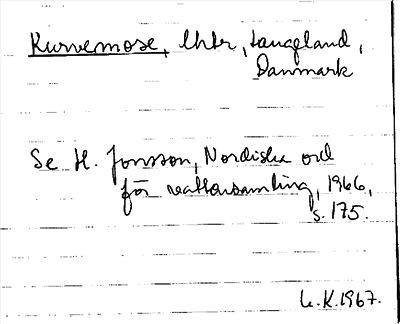 Kurvemose, Uhbr, Langeland,
Danmark
Se H. Jonsson, Nordiska ord
för vattensamling, 1966,
s. 175.
L.K. 1967.